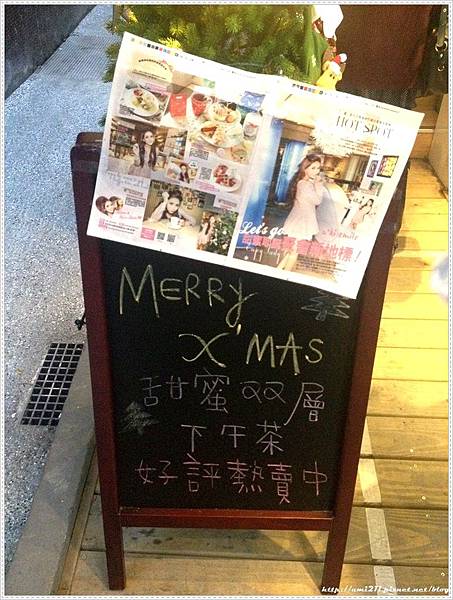 HOT SPOT
Let's go
MERRY
X'MAS
甜蜜双層
下午茶
好評熱賣中
http://am1211.pixnet.net/blog